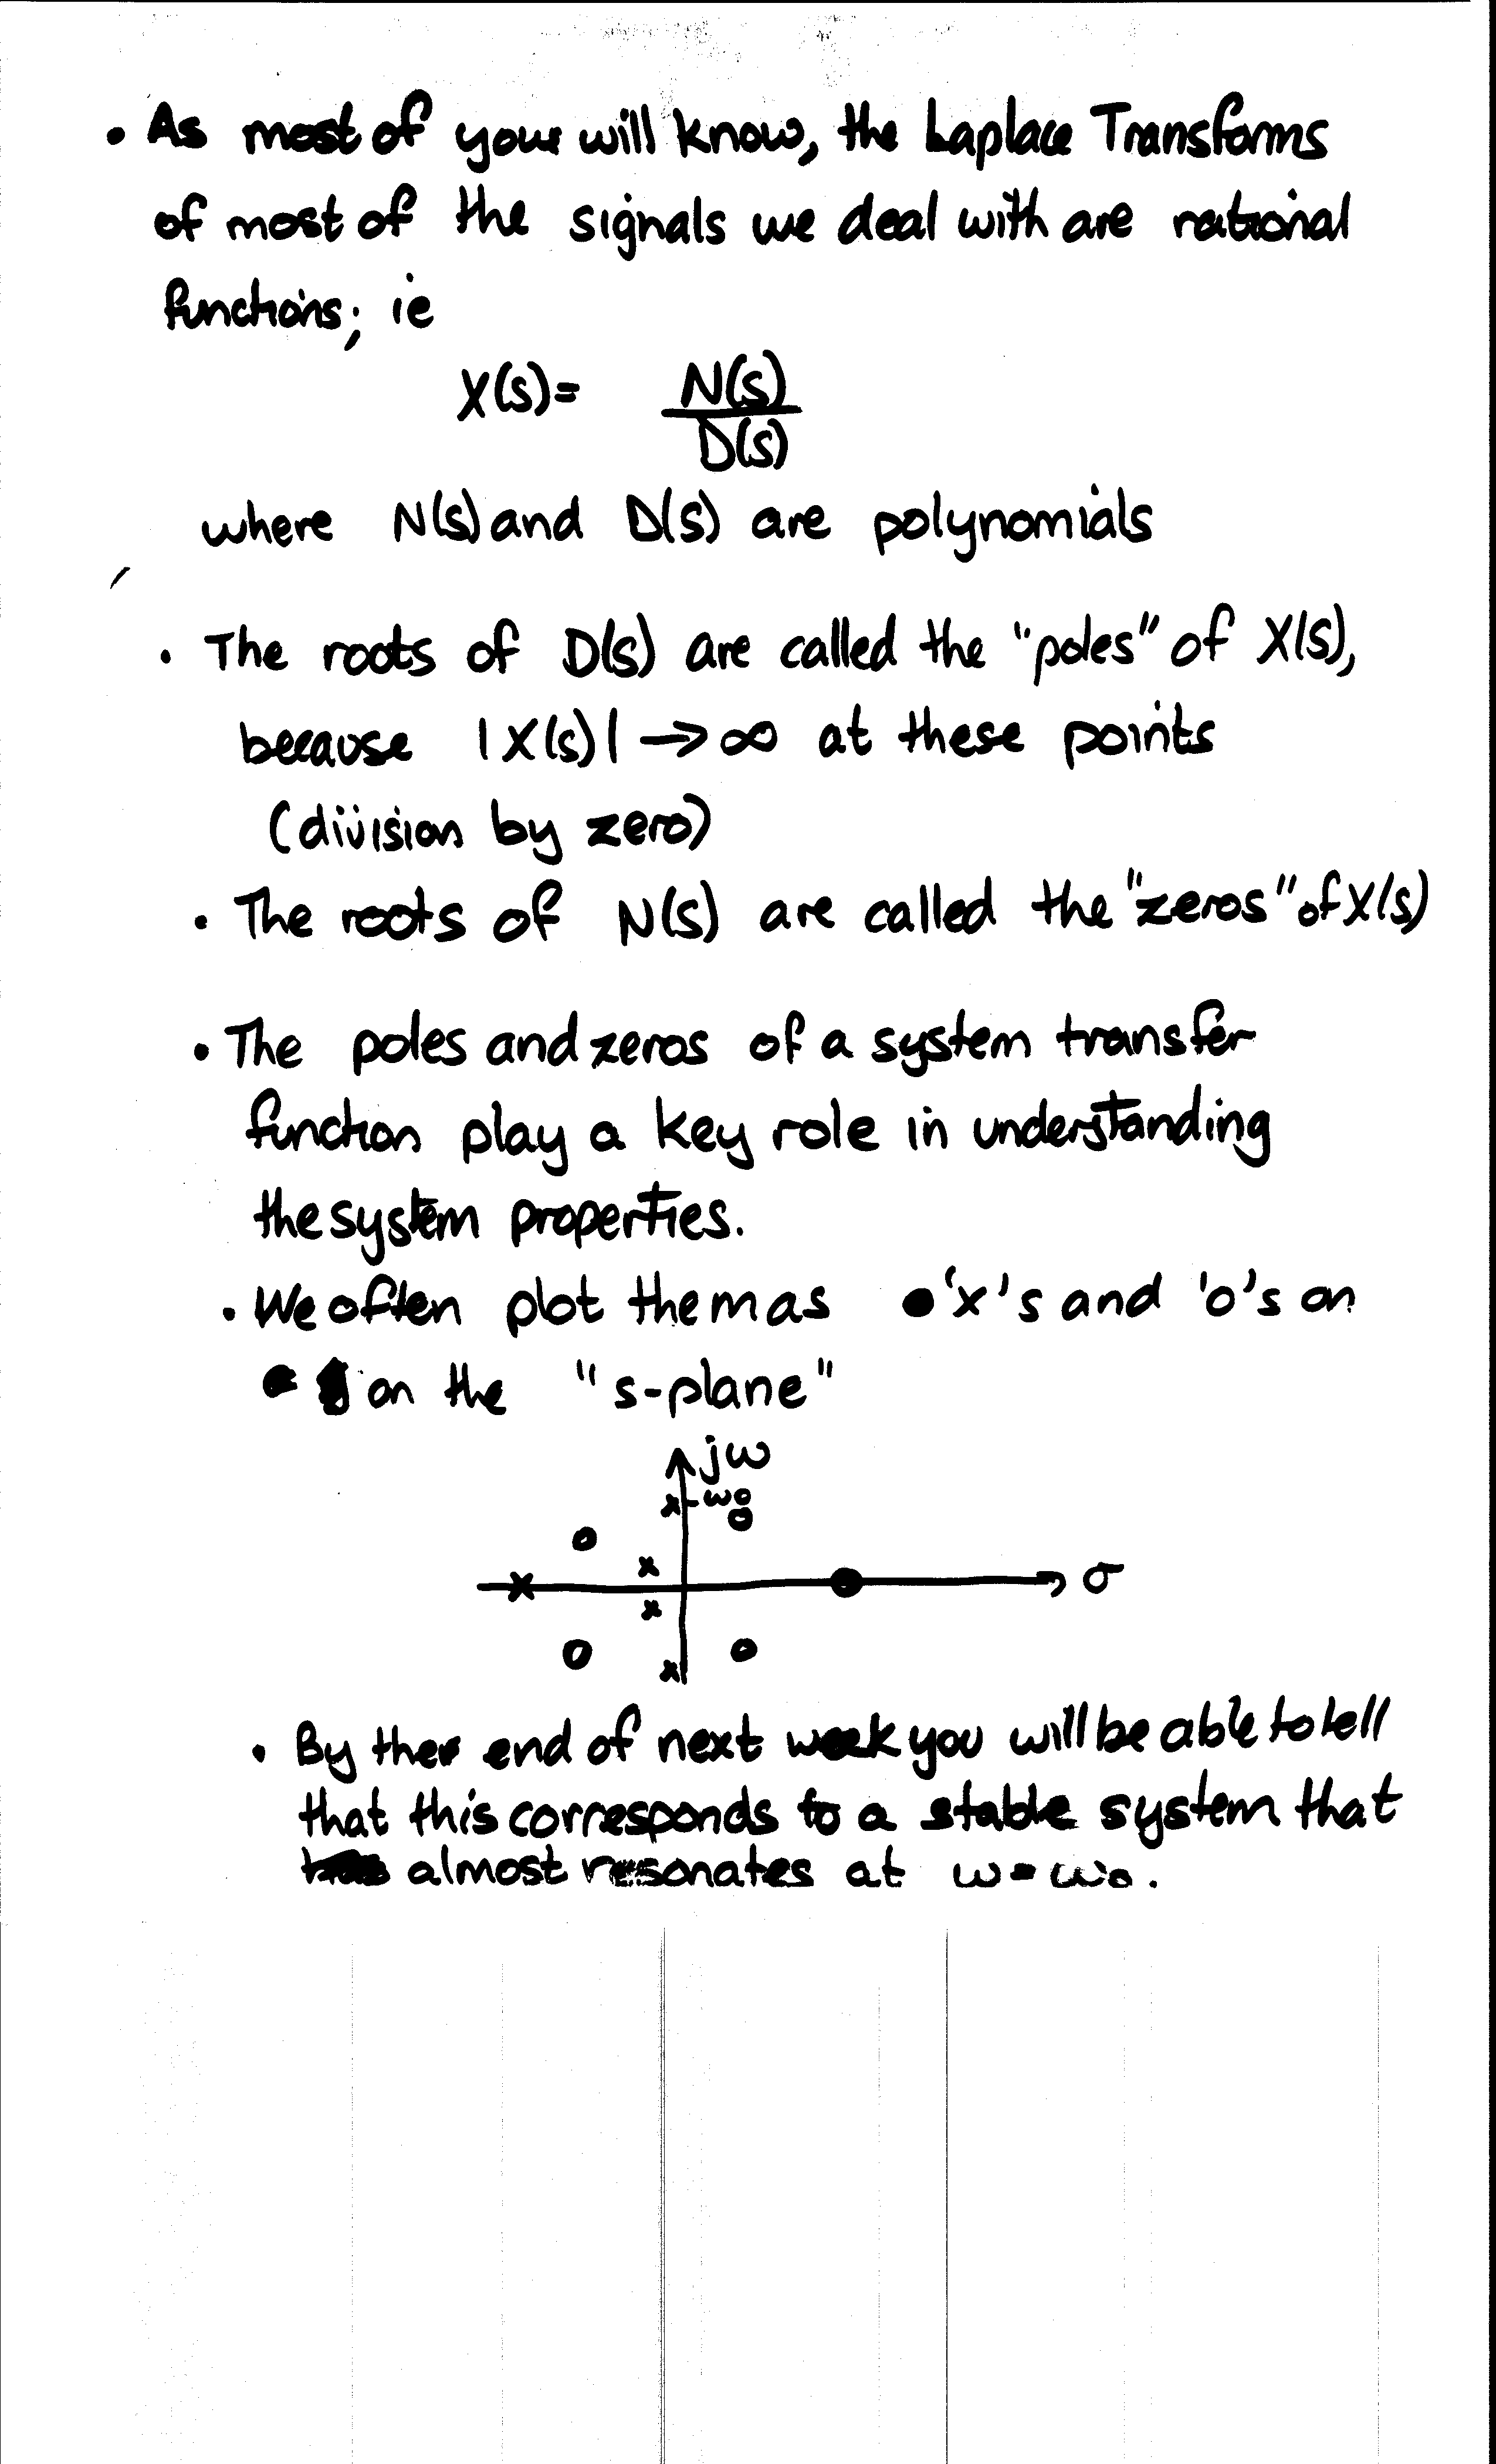 • As most of your will know, the Laplace Transforms
of most of the signals we deal with are rational
functions; ie
X(s)= N(s)
D(s)
where N(s) and D(s) are polynomials
• The roots of D(s) are called the "poles" of X(s),
because |X(s)| → ∞ at these points
(division by zero)
• The roots of N(s) are called the "zeros" of X(s)
• The poles and zeros of a system transfer
function play a key role in understanding
the system properties.
• We often plot them as 'x's and 'o's on
on the "s-plane"
jω
ω₀
σ
• By the end of next week you will be able to tell
that this corresponds to a stable system that
almost resonates at ω = ω₀.